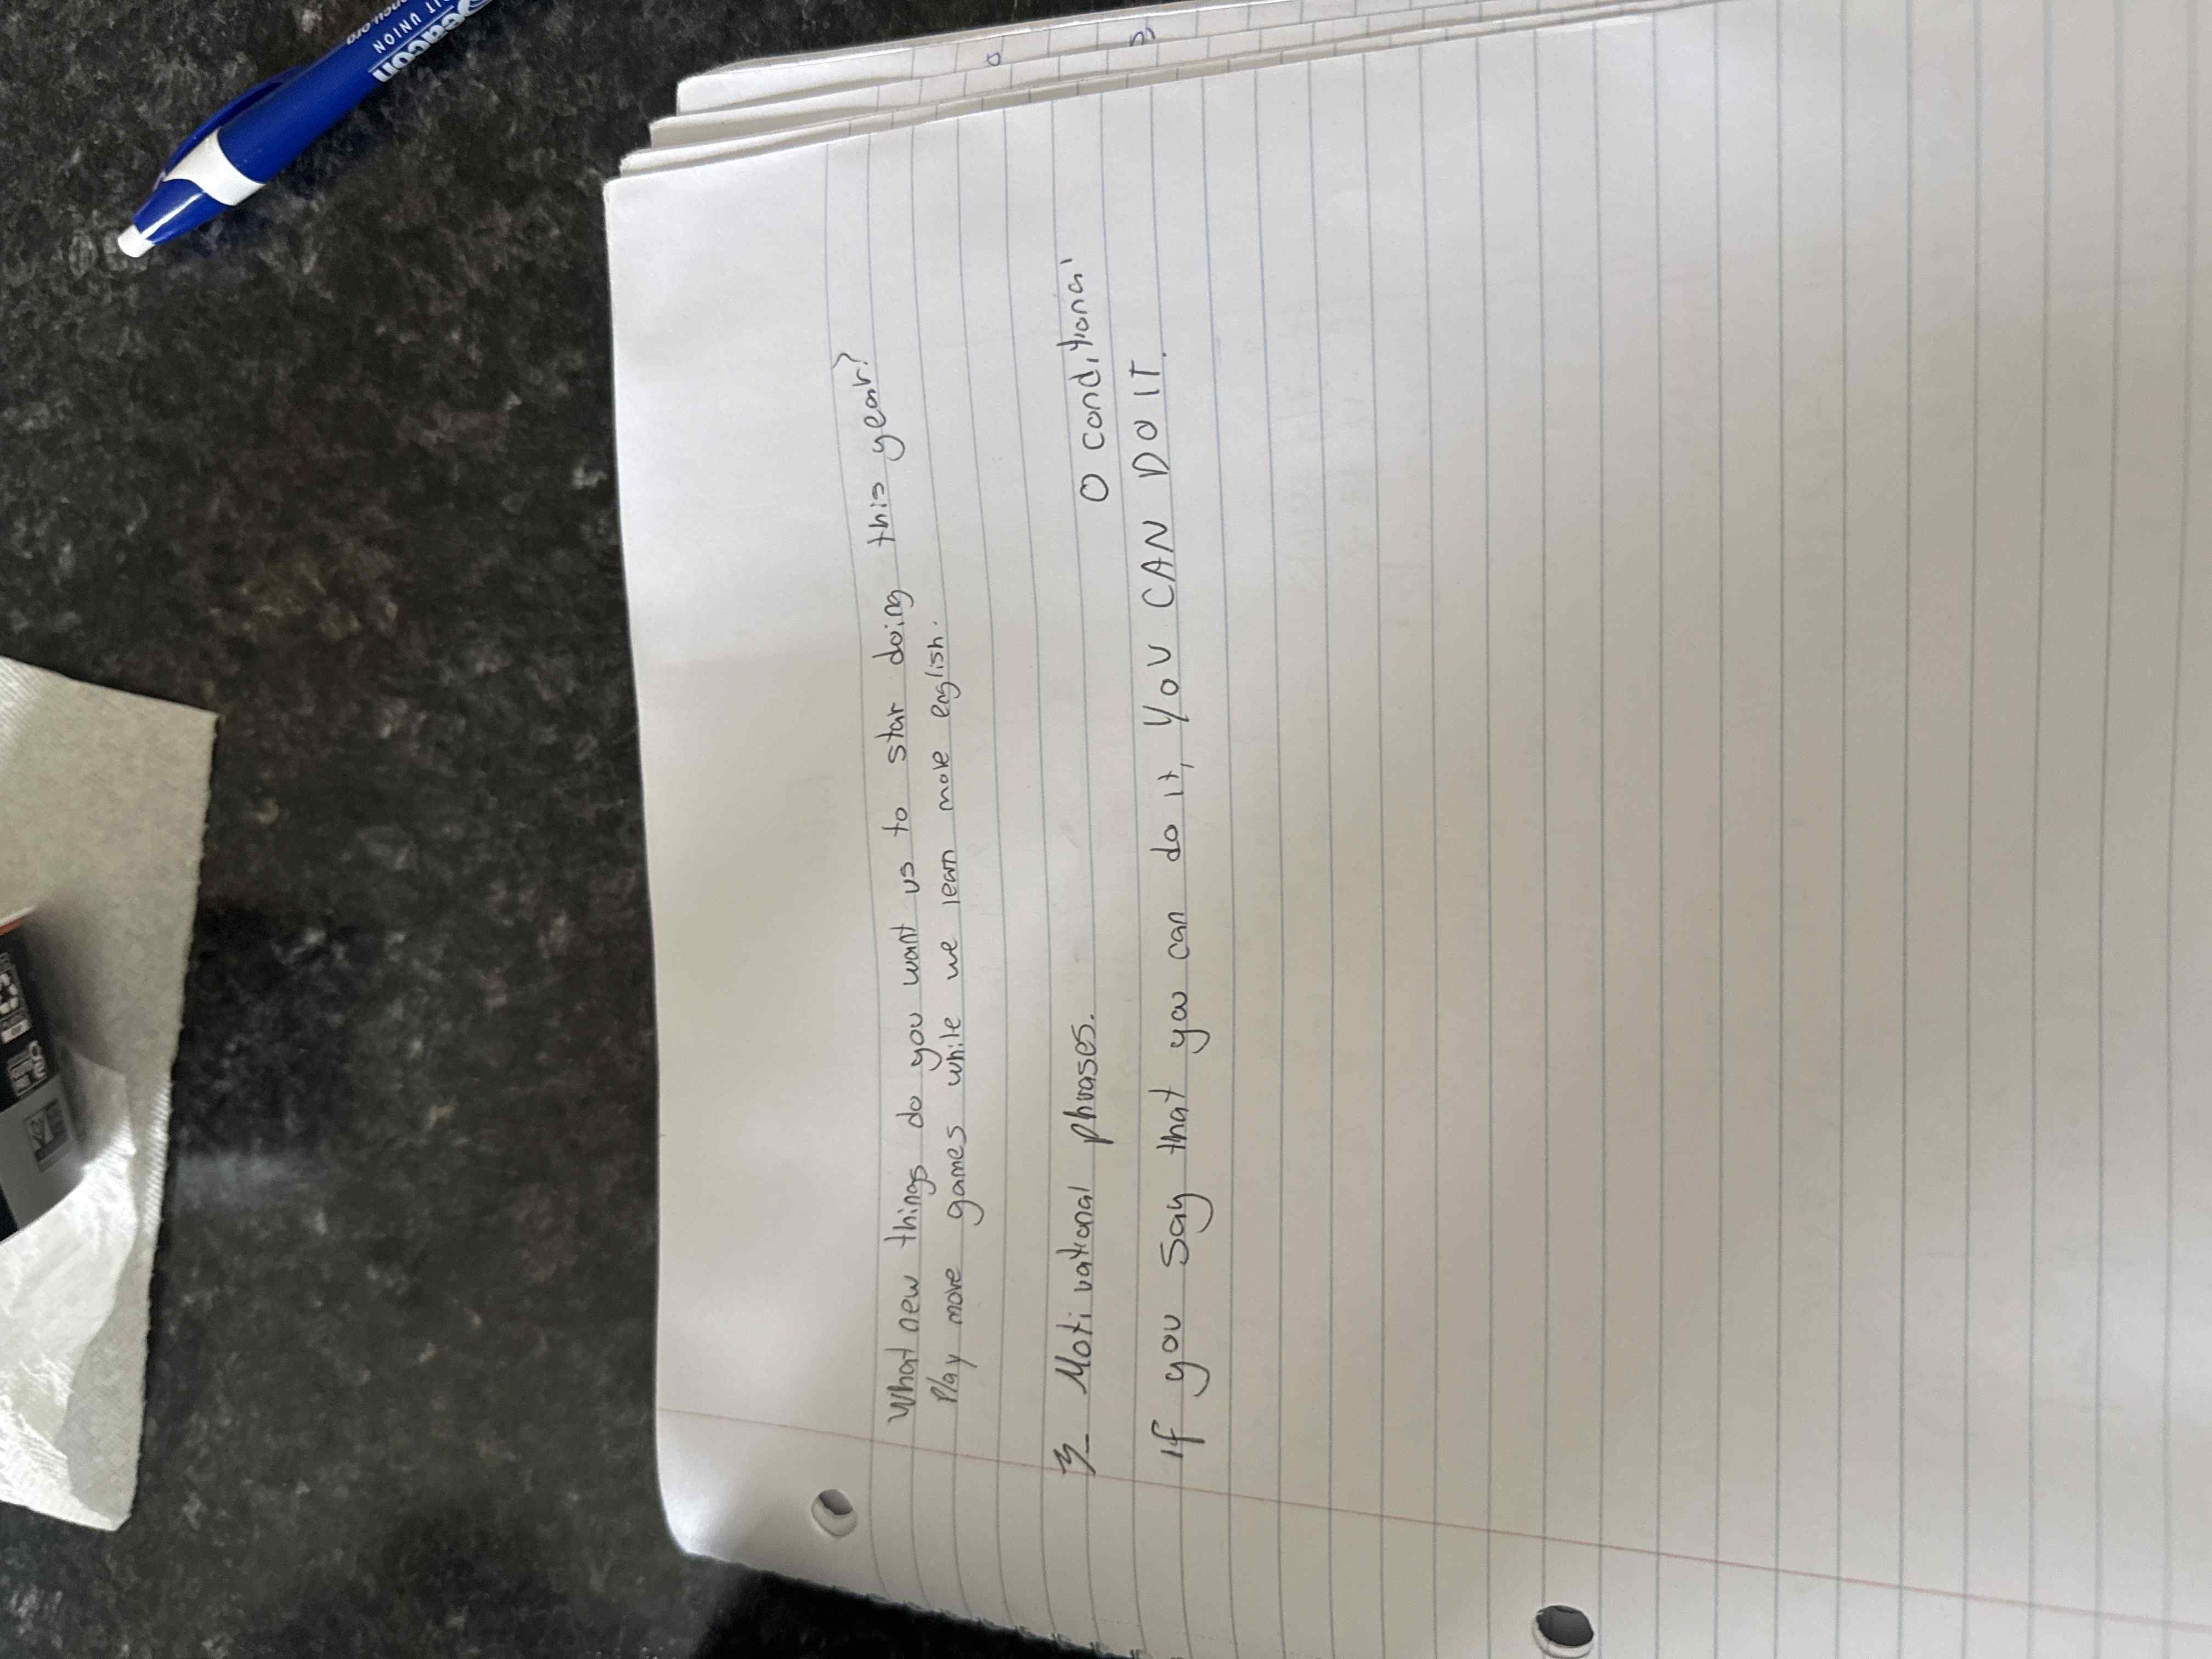 What new things do you want us to star doing this year?
Play more games while we learn more english.
3_ Motivational phrases.
0 conditional
If you say that you can do it, YOU CAN DO IT.
eacon
IT UNION
ncu.org